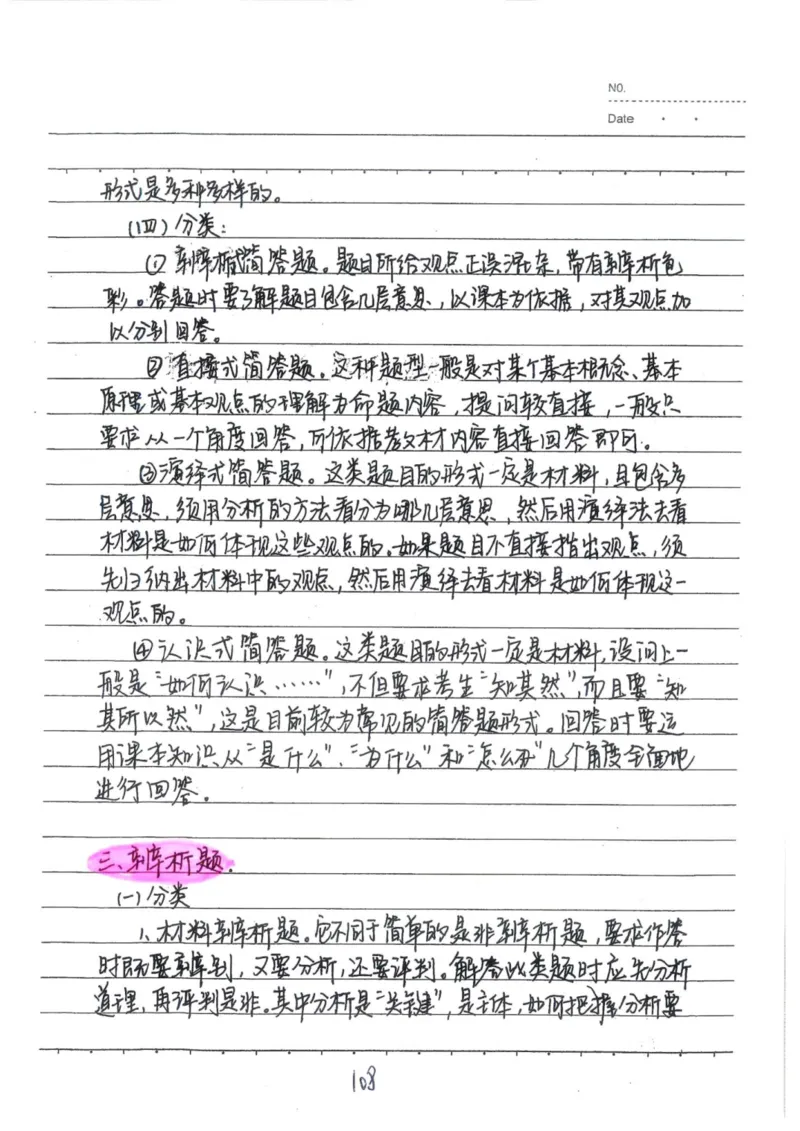 NO.
Date
形式是多种多样的。
(四)分类:
① 辨析式简答题。题目所给观点正误混杂,带有辨析色
彩。答题时要了解题目包含几层意思,以课本为依据,对其观点加
以分别回答。
② 直接式简答题。这种题型一般是对某个基本概念、基本
原理或基本观点的理解为命题内容,提问较直接,一般只
要求从一个角度回答,可依据教材内容直接回答即可。
③演绎式简答题。这类题目的形式一定是材料,且包含多
层意思,须用分析的方法看分为哪几层意思,然后用演绎法去看
材料是如何体现这些观点的。如果题目不直接指出观点,须
先归纳出材料中的观点,然后用演绎去看材料是如何体现这一
观点的。
④认识式简答题。这类题目的形式一定是材料,设问上一
般是“如何认识……”,不但要求考生“知其然”,而且要“知
其所以然”,这是目前较为常见的简答题形式。回答时要运
用课本知识从“是什么”、“为什么”和“怎么办”几个角度全面地
进行回答。
三、辨析题.
(一)分类
1、材料辨析题。它不同于简单的是非辨析题,要求作答
时既要辨别,又要分析,还要评判。解答此类题时应先分析
道理,再评判是非。其中分析是“关键”,是主体,如何把握分析要
108